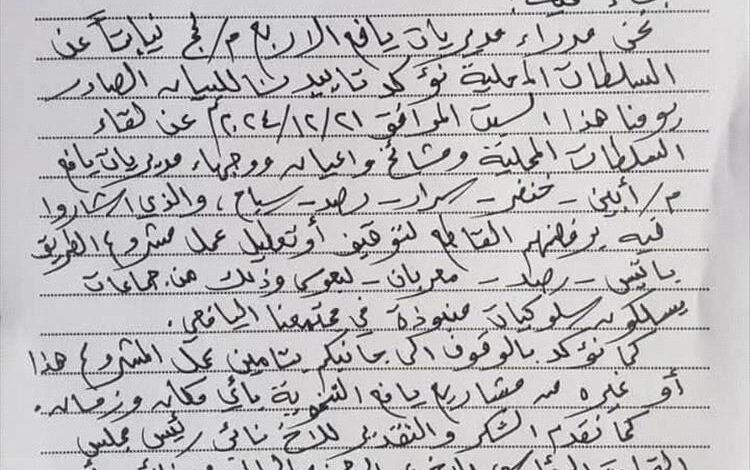 نحن مدراء مديريات يافع الاربع م/لحج نيابتاً عن
السلطات المحلية نؤكد تاييدنا للبيان الصادر
يومنا هذا السبت الموافق ٢٠٢٤/١٢/٢١م عن لقاء
السلطات المحلية ومشائخ واعيان ووجهاء مديريات يافع
م/أبين - خنفر - سرار - رصد - سباح، والذي اشاروا
فيه برفضهم القاطع لتوقيف أو تعطيل عمل مشروع الطريق
باتيس - رصد - معربان - لبعوس وذلك من جماعات
يسلكون سلوكيات منبوذة في مجتمعنا اليافعي.
كما نؤكد بالوقوف الى جانبكم بتامين عمل المشروع هذا
أو غيره من مشاريع يافع التنموية بأي مكان وزمان.
كما نقدم الشكر والتقدير للاخ نائب رئيس مجلس